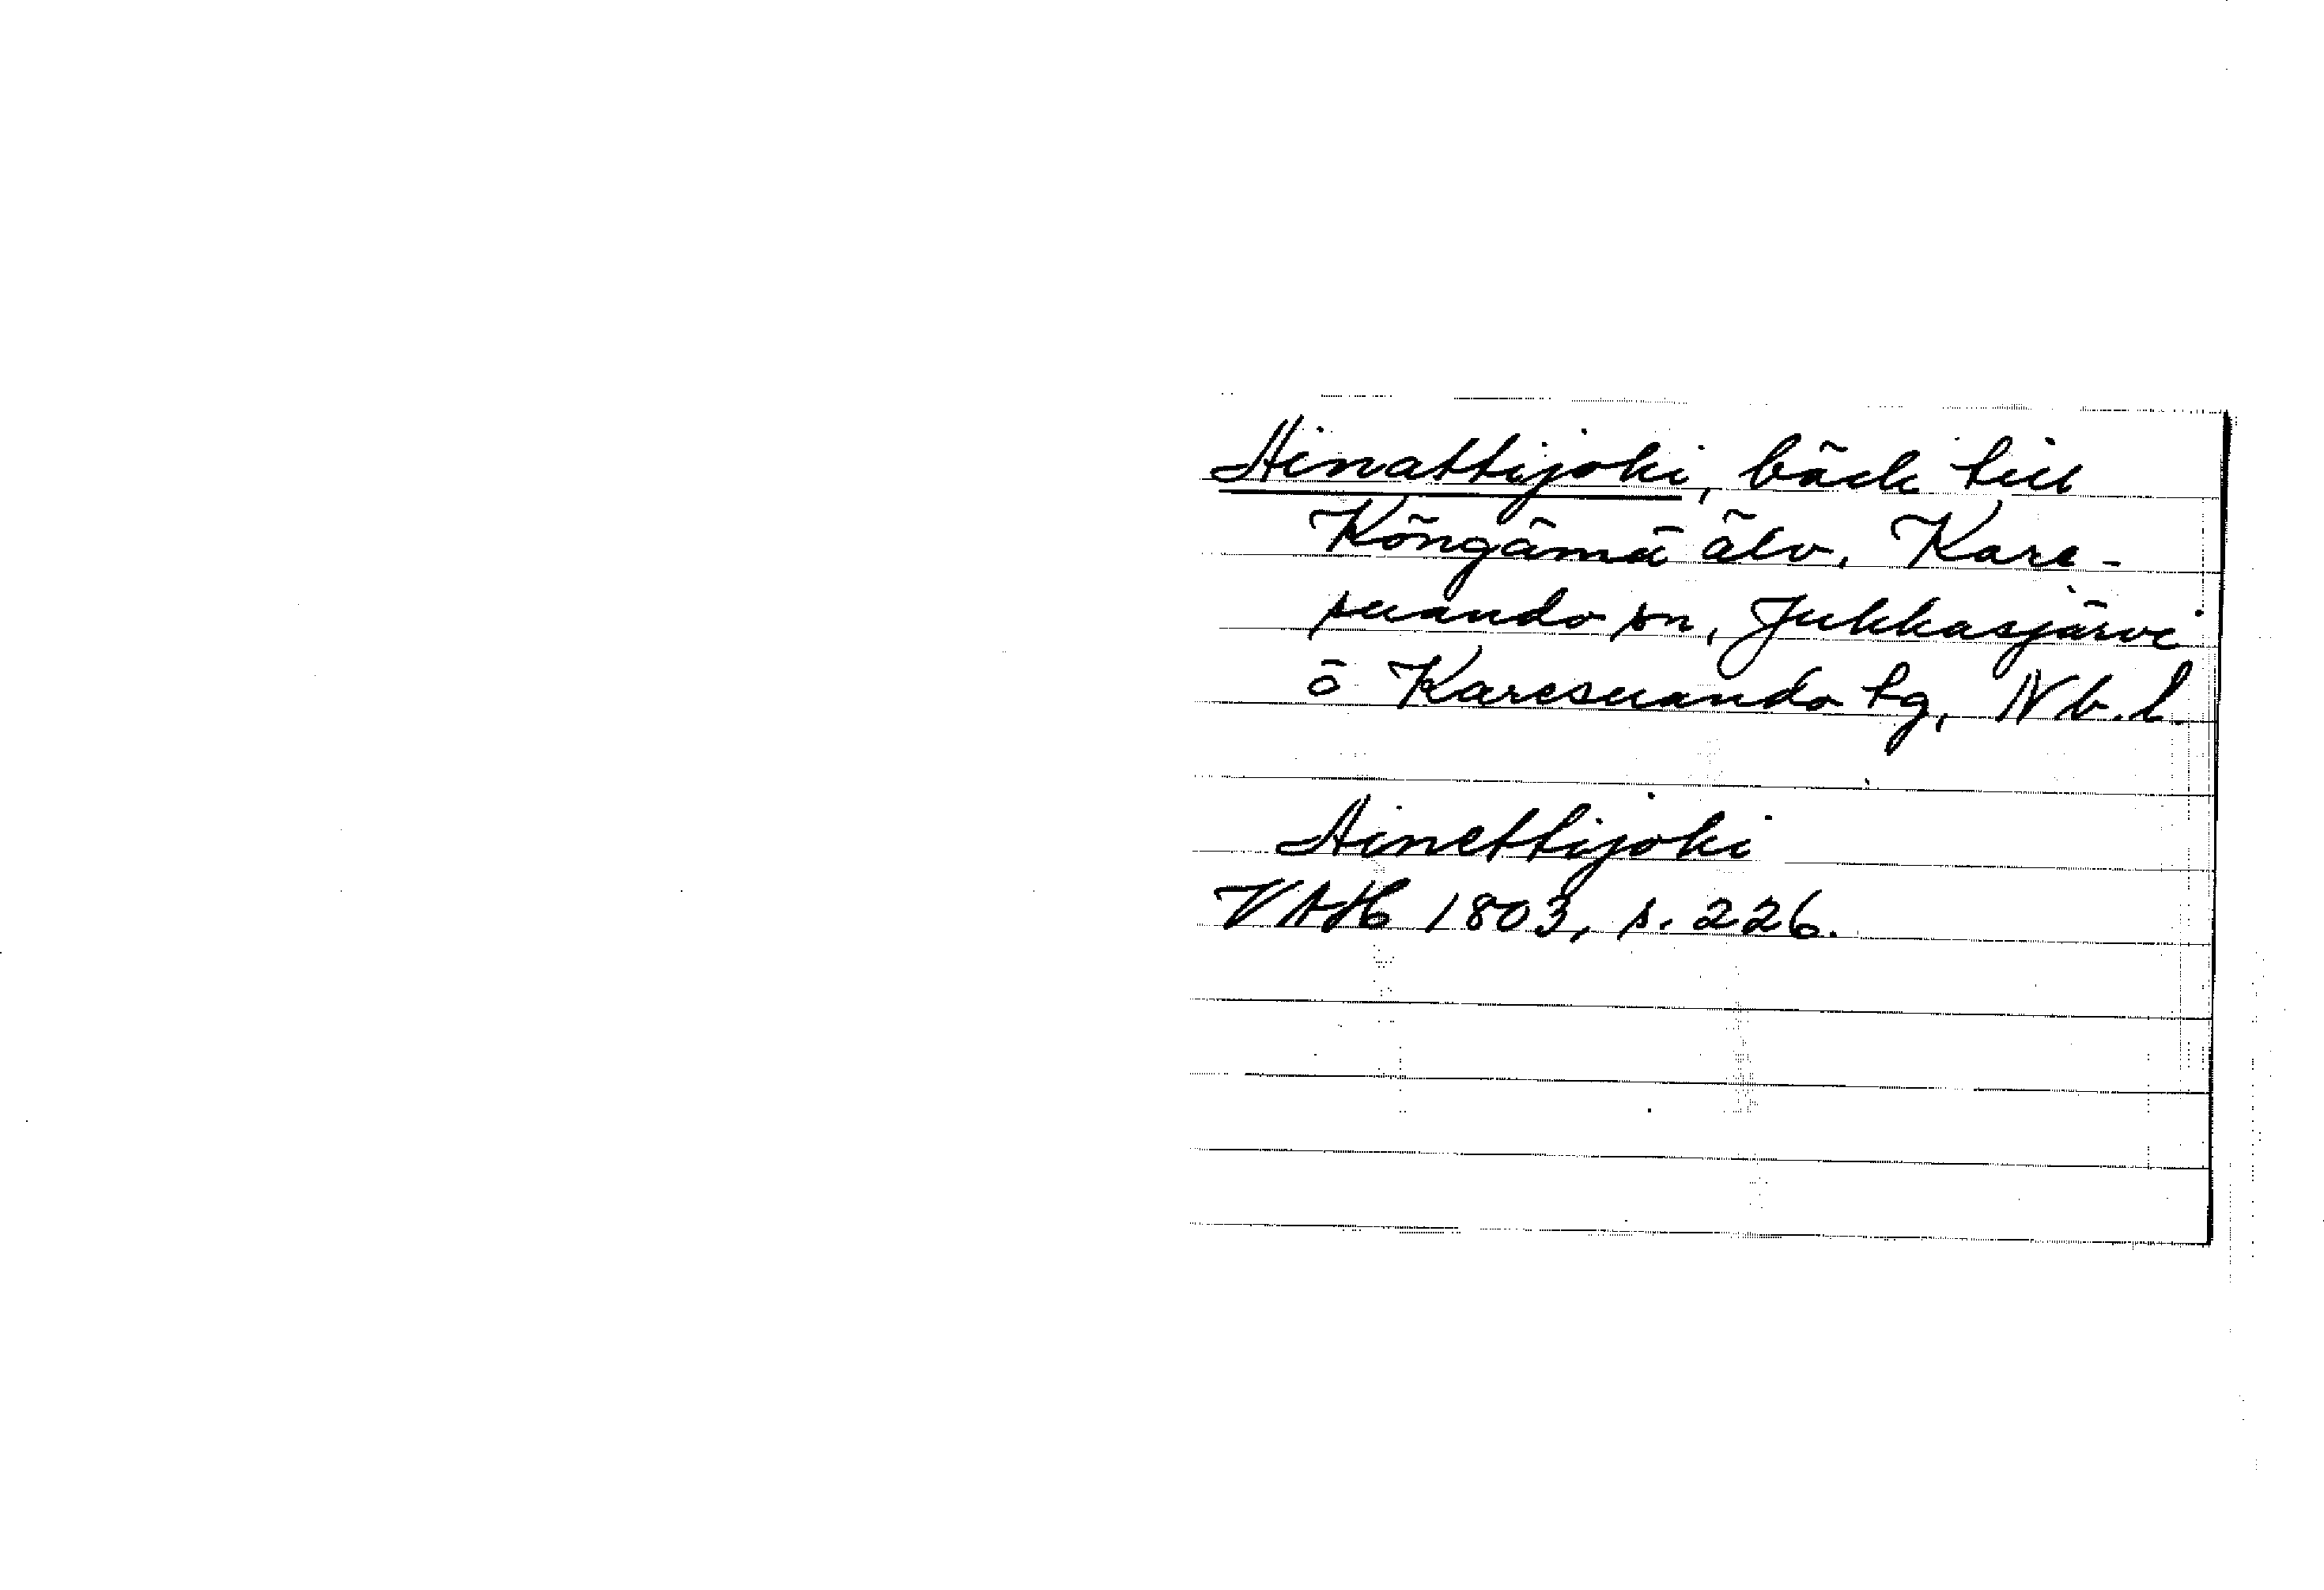 Ainattijoki, bäck till
Köngämä älv, Kare-
suando sn, Jukkasjärvi
o Karesuando tg, Nb. l.
Ainettijoki
VAH 1803, s. 226.